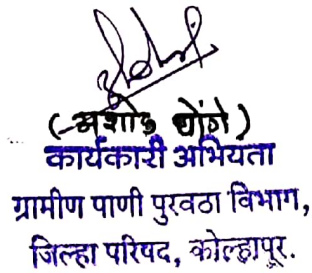 (अशोक धोंगे)
कार्यकारी अभियता
ग्रामीण पाणी पुरवठा विभाग,
जिल्हा परिषद, कोल्हापूर.